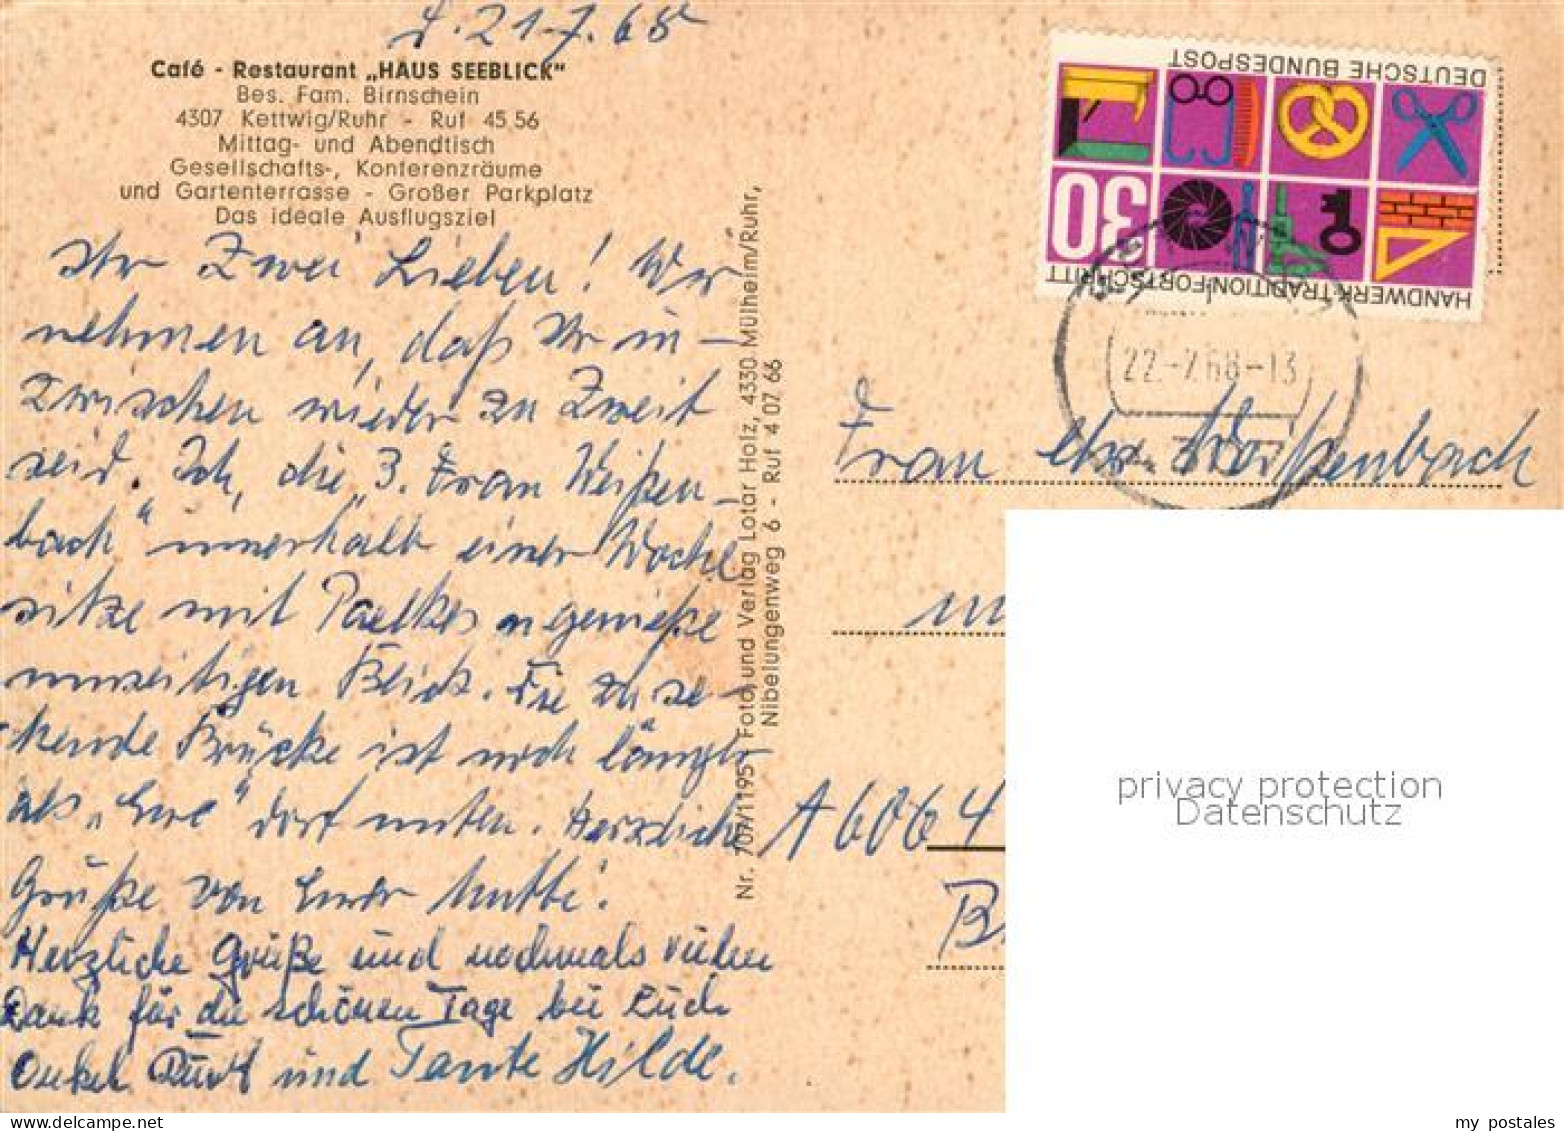 21.7.68
Café - Restaurant „HAUS SEEBLICK"
Bes. Fam. Birnschein
4307 Kettwig/Ruhr - Ruf 45 56
Mittag- und Abendtisch
Gesellschafts-, Konferenzräume
und Gartenterrasse - Großer Parkplatz
Das ideale Ausflugsziel
Ihr Zwei Lieben! Wir
nehmen an, daß Ihr in-
zwischen wieder zu Zweit
seid. Ich, die „3. Frau Weißen-
bach" innerhalb einer Woche
sitze mit genieße
Blick. Die zu se-
hende Brücke ist noch länger
als „Eure" dort unten. Herzliche
Grüße von Eurer Mutti.
Herzliche Grüße und nochmals vielen
Dank für die schönen Tage bei Euch
Onkel und Tante Hilde.
Nr. 707/1195 Foto und Verlag Lotar Holz, 4330 Mülheim/Ruhr,
Nibelungenweg 6 - Ruf 4 07 66
DEUTSCHE BUNDESPOST
30
HANDWERK·TRADITION·FORTSCHRITT
22.-7.68-13
Weißenbach
A 6064
privacy protection
Datenschutz
my postales